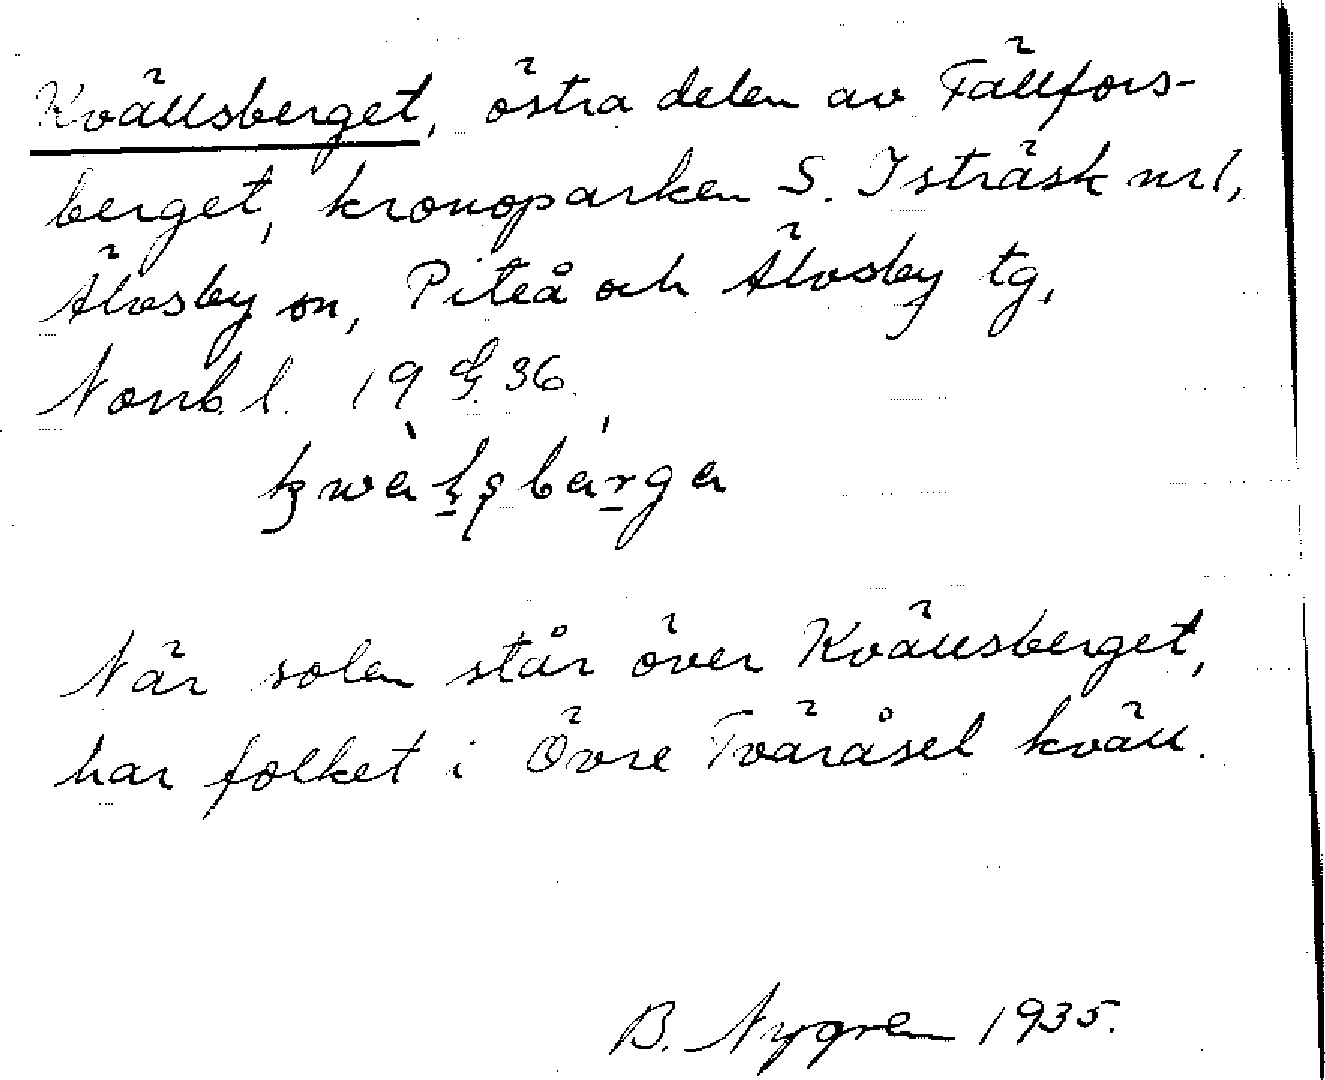 Kvällsberget, östra delen av Fällfors-
berget, kronoparken S. Isträsk nr 1,
Älvsby sn, Piteå och Älvsby tg,
Norrb. l. 19 36.
När solen står över Kvällsberget,
har folket i Övre Tväråsel kväll.
B. Nygren 1935.